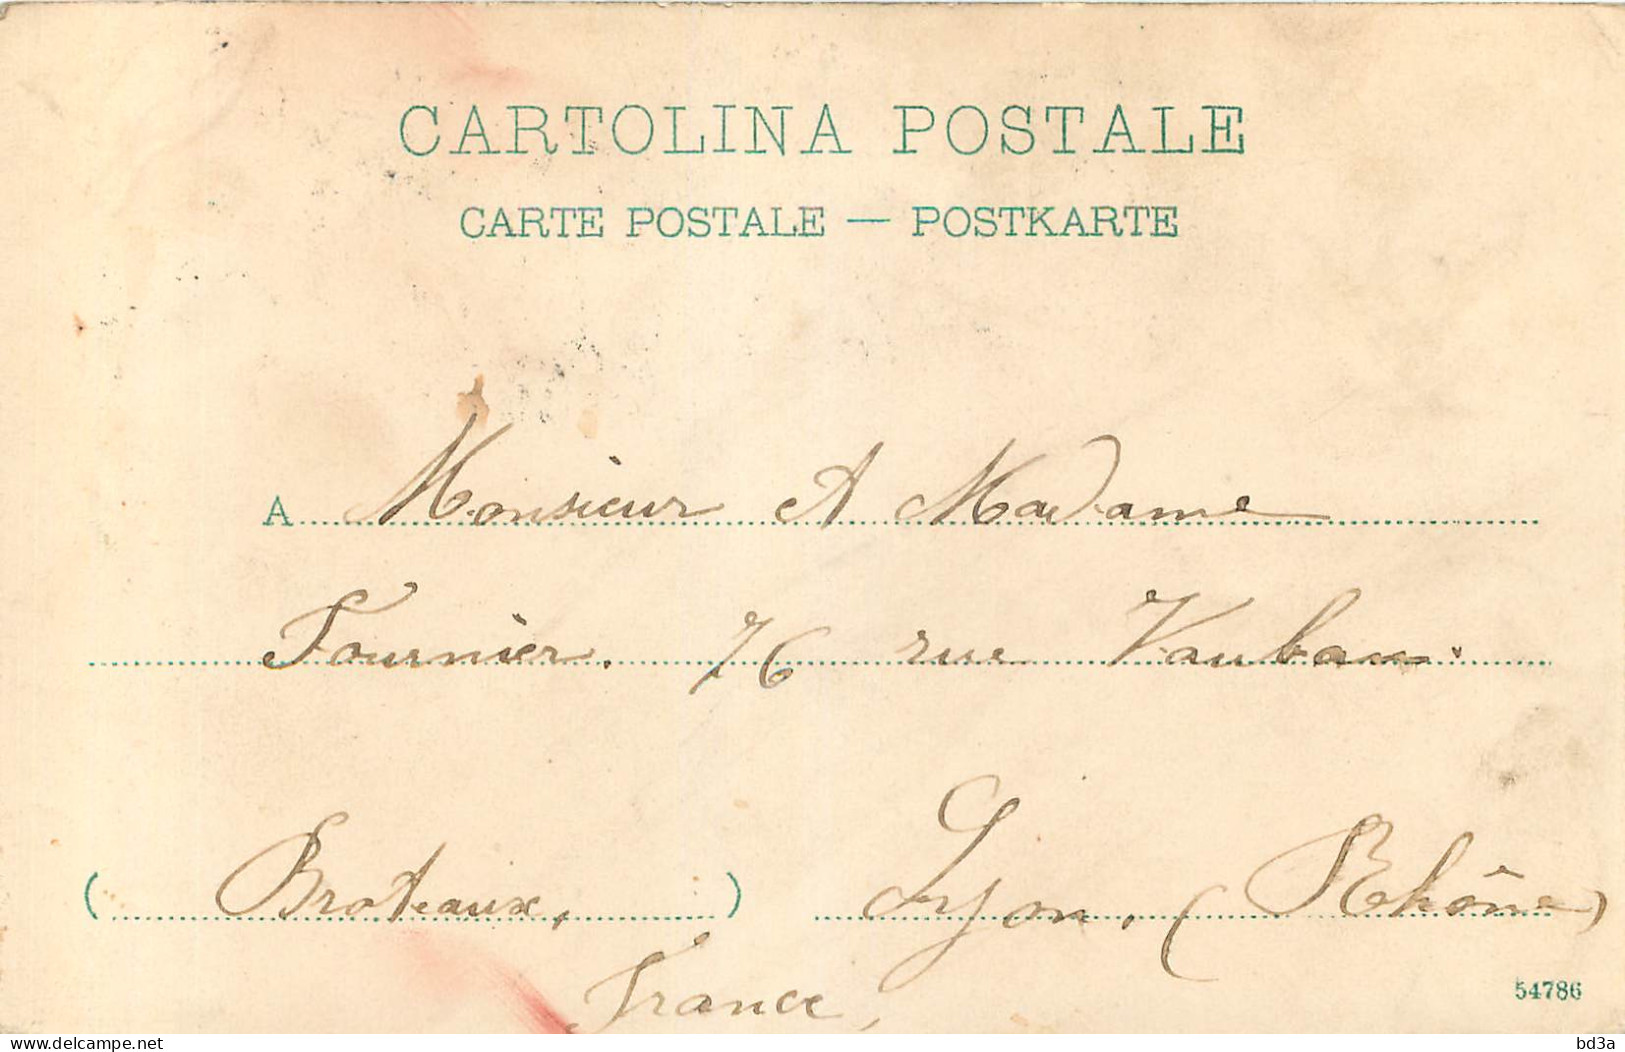 CARTOLINA POSTALE
CARTE POSTALE — POSTKARTE
A Monsieur A Madame
Fournier. 76 rue Vauban.
( Broteaux, ) Lyon, (Rhône)
France,
54786
www.delcampe.net
bd3a